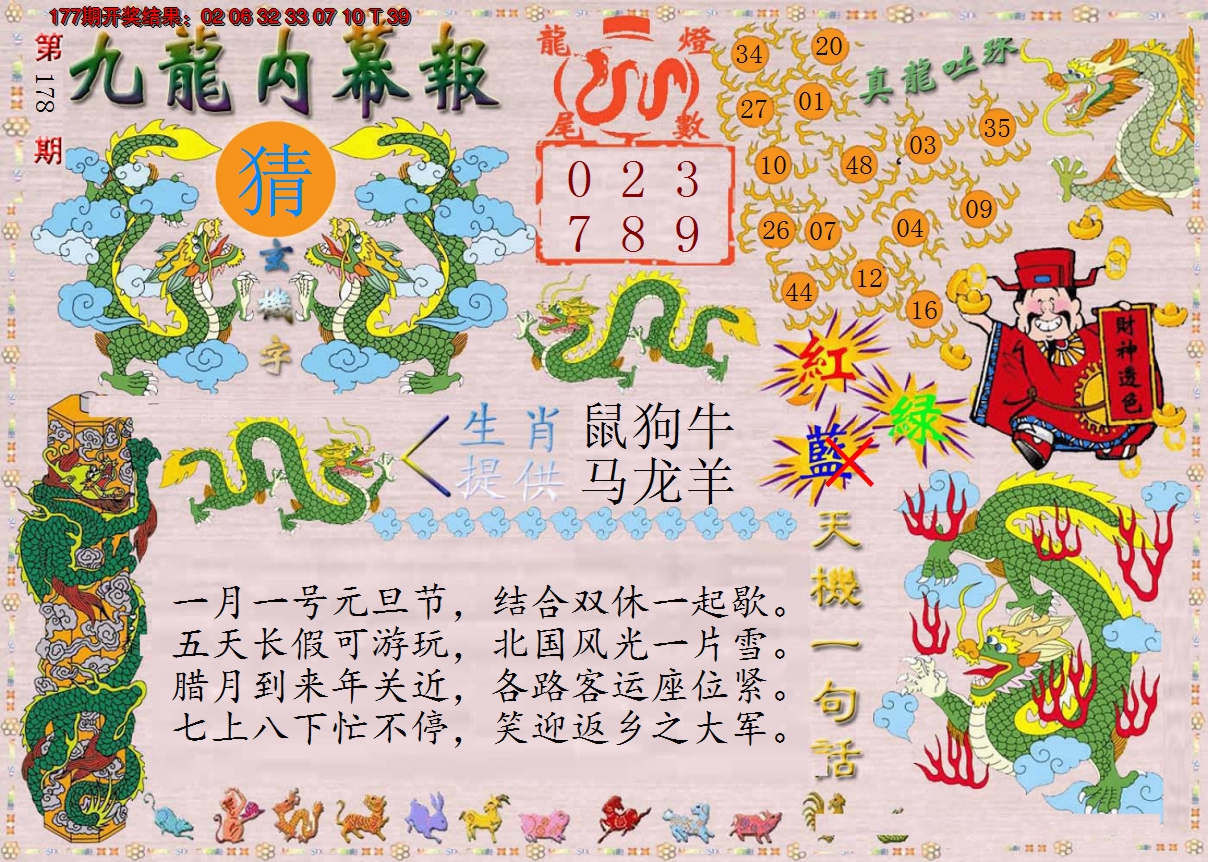 177期开奖结果：02 06 32 33 07 10 T 39
第178期
九龍内幕報
猜
玄機字
龍燈尾數
0 2 3
7 8 9
真龍吐珠
34 20
27 01
10 48 03 35
26 07 04 09
44 12 16
財神透色
紅
綠
藍
生肖 鼠狗牛
提供 马龙羊
天機一句话
一月一号元旦节，结合双休一起歇。
五天长假可游玩，北国风光一片雪。
腊月到来年关近，各路客运座位紧。
七上八下忙不停，笑迎返乡之大军。